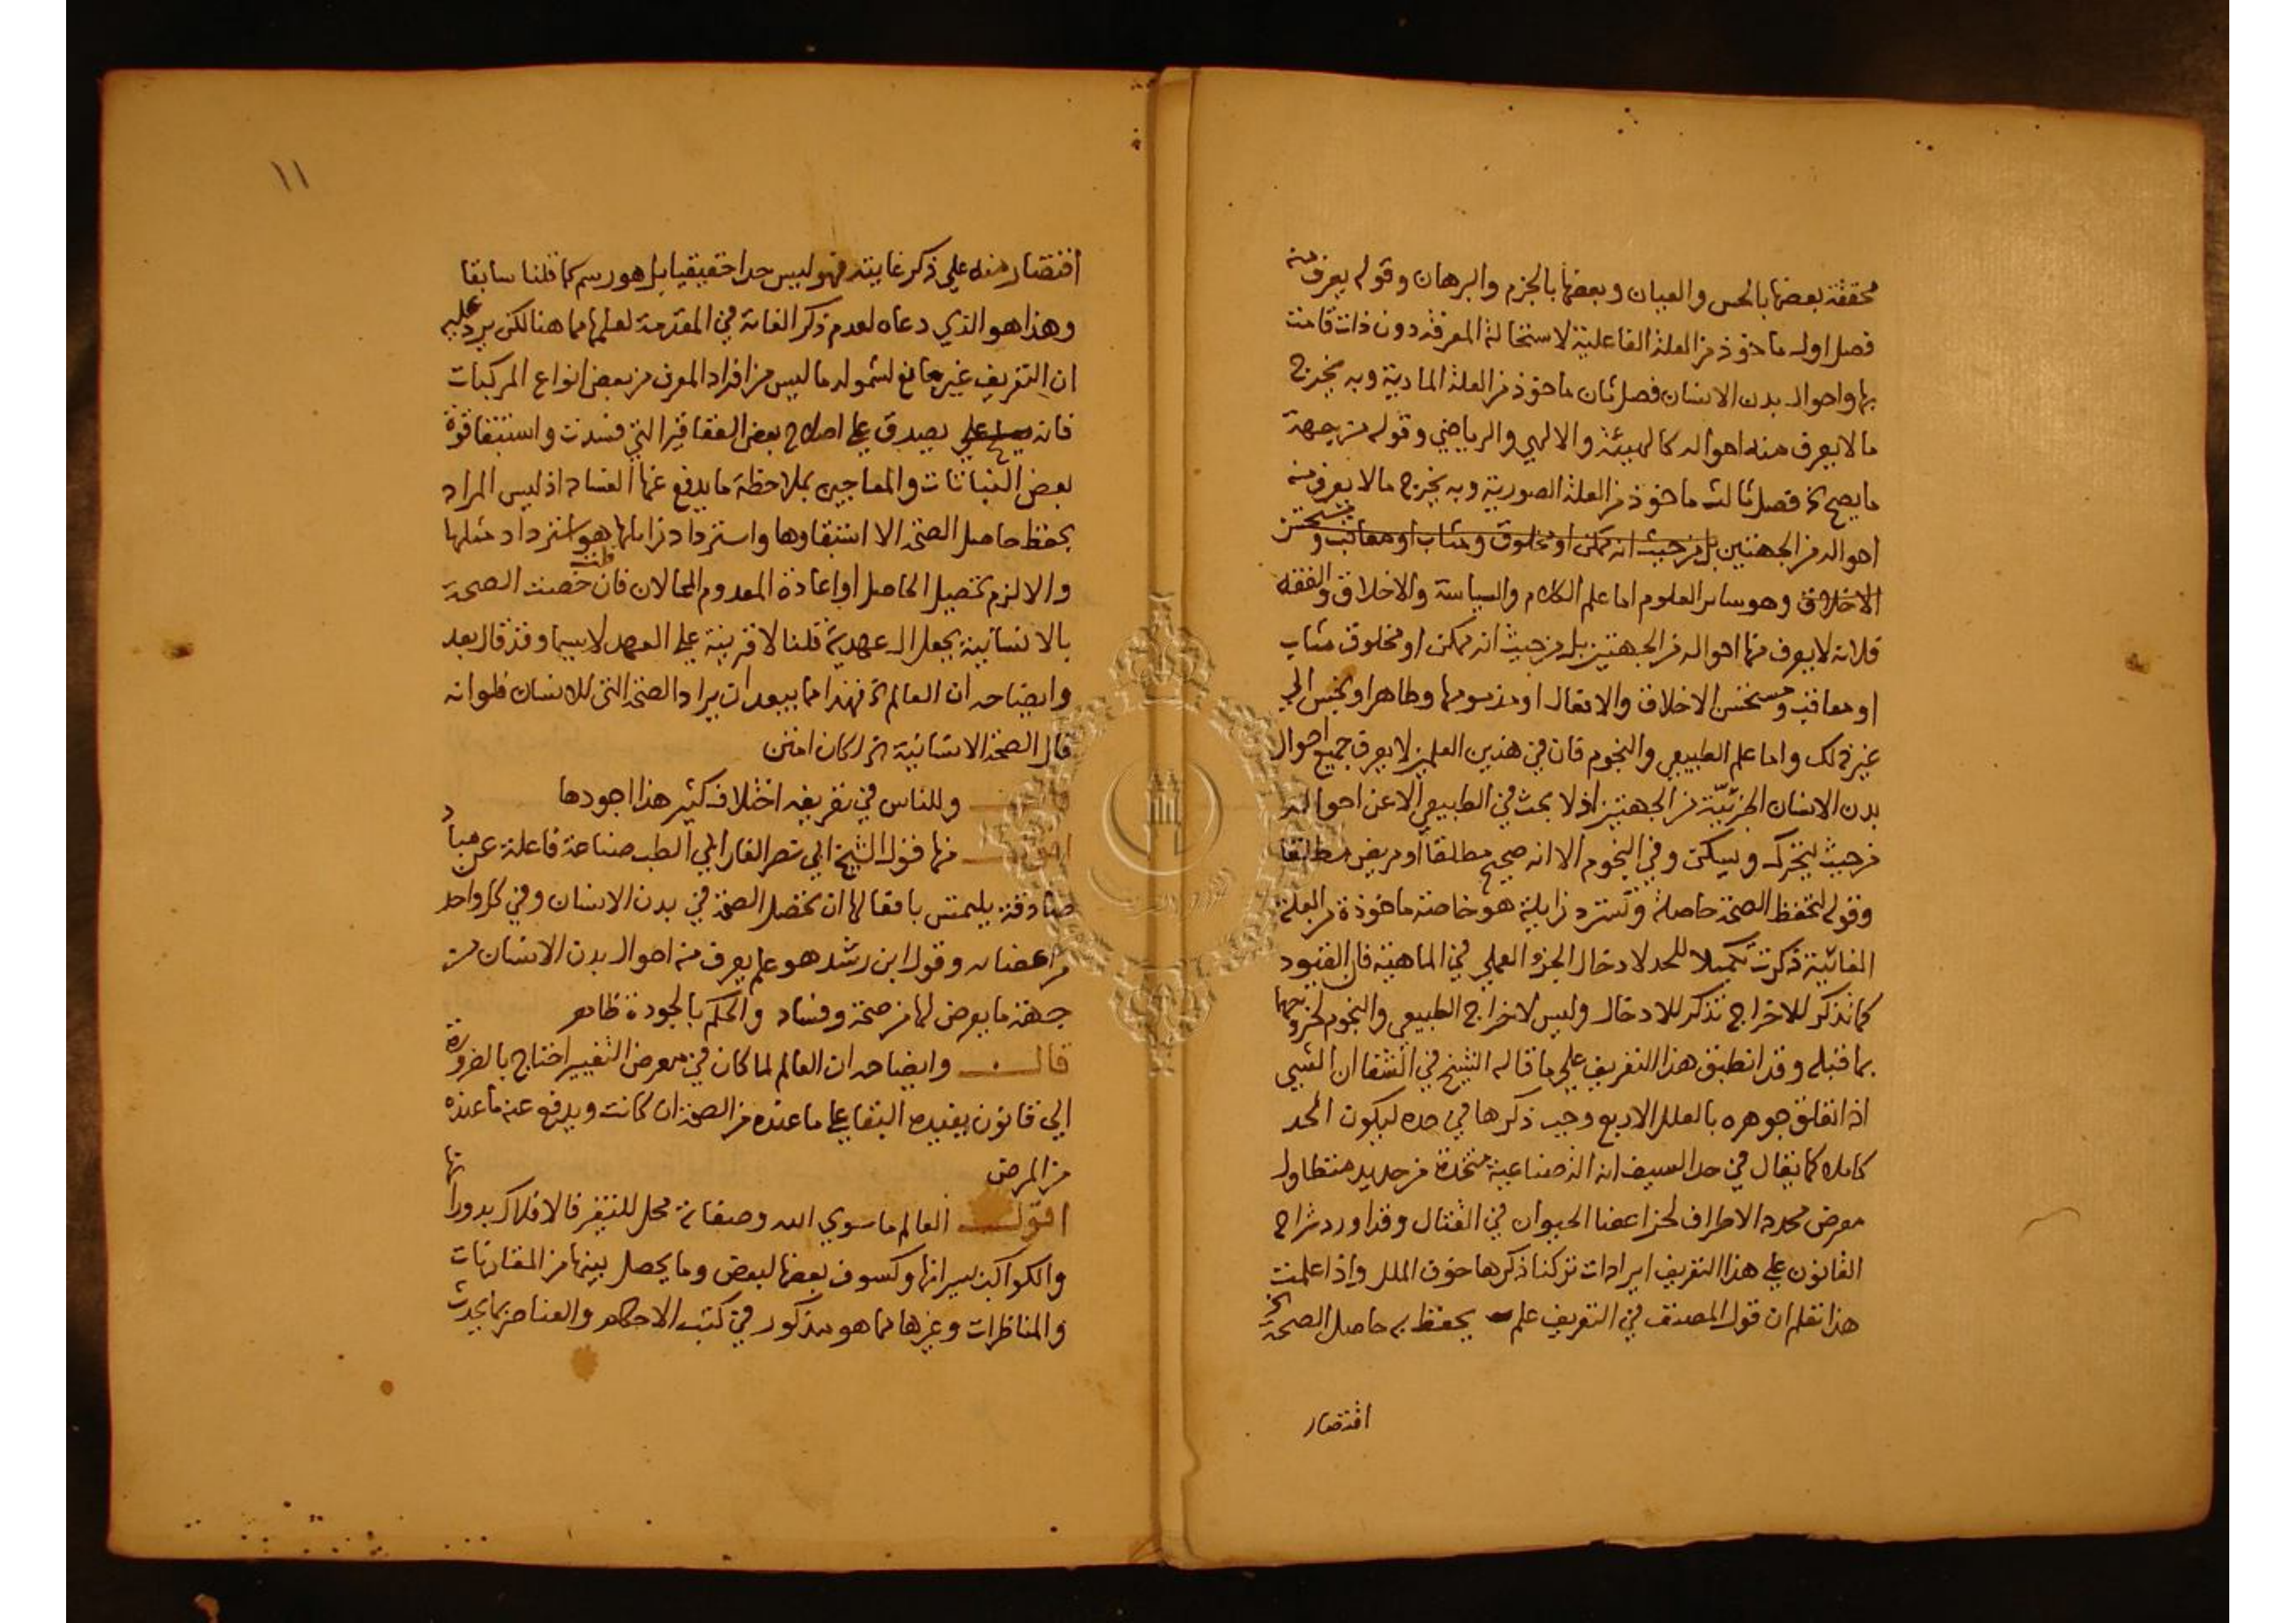 محققة بعضها بالحس والعيان وبعضها بالجزم والبرهان وقوله يعرف منه
فصل اول ماخوذ من العلة الفاعلية لاستحالة المعرفة دون ذات قامت
بها واحوال بدن الانسان فصل ثان ماخوذ من العلة المادية وبه يخرج
ما لا يعرف منه احواله كالهيئة والالهي والرياضي وقوله من جهة
ما يصح الخ فصل ثالث ماخوذ من العلة الصورية وبه يخرج ما لا يعرف منه
احواله من الجهتين بل من حيث انه ممكن او مخلوق ومثاب او معاقب و مستحسن
الاخلاق وهو ساير العلوم اما علم الكلام والسياسة والاخلاق والفقه
فلانه لا يعرف منها احواله من الجهتين بل من حيث انه ممكن او مخلوق مثاب
او معاقب ومستحسن الاخلاق والافعال او مذمومها وطاهر او نجس الي
غير ذلك واما علم الطبيعي والنجوم فان في هذين العلمين لا يعرف جميع احوال
بدن الانسان الجزئيّة من الجهتين اذ لا بحث في الطبيعي الا عن احواله
من حيث يتحرك ويسكن وفي النجوم الا انه صحيح مطلقا او مريض مطلقا
وقوله لتحفظ الصحة حاصلة وتسترد زايلة هو خاصة ماخوذة من العلة
الغائية ذكرت تكميلا للحد لادخال الجزو العملي في الماهية فان القيود
كما تذكر للاخراج تذكر للادخال وليس لاخراج الطبيعي والنجوم لخروجهما
بما قبله وقد انطبق هذا التعريف علي ما قاله الشيخ في الشفا ان الشيي
اذا تعلق جوهره بالعلل الاربع وجب ذكرها في حده ليكون الحد
كاملا كما يقال في حد السيف انه الة صناعية متخذة من حديد متطاول
معرض محدد الاطراف لحز اعضا الحيوان في القتال وقد اورد شراح
القانون علي هذا التعريف ايرادات تركنا ذكرها خوف الملل واذا علمت
هذا تعلم ان قول المصنف في التعريف علم يحفظ به حاصل الصحة الخ
اقتصار
١١
اقتصار منه علي ذكر غايته فهو ليس حدا حقيقيا بل هو رسم كما قلنا سابقا
وهذا هو الذي دعاه لعدم ذكر الغاية في المقدمة لعلمها مما هنا لكن يرد عليه
ان التعريف غير مانع لشموله ما ليس من افراد المعرف من بعض انواع المركبات
فانه يصدق علي اصلاح بعض العقاقير التي فسدت واستبقا قوة
بعض النباتات والمعاجين بملاحظة ما يدفع عنها الفساد اذ ليس المراد
بحفظ حاصل الصحة الا استبقاوها واسترداد زايلها هو استرداد مثلها
والا لزم تحصيل الحاصل او اعادة المعدوم المحالان فان قلت خصصت الصحة
بالانسانية بجعل ال عهدية قلنا لا قرينة علي العهد لا سيما وقد قال بعد
وايضاحه ان العالم الخ فهذا مما يبعد ان يراد الصحة التي للانسان فلو انه
قال الصحة الانسانية الخ لكان امتن
قال وللناس في تعريفه اختلاف كثير هذا اجودها
اقول منها قول الشيخ ابي نصر الفارابي الطب صناعة فاعلة عن مباد
صادقة يلتمس بافعالها ان تحصل الصحة في بدن الانسان وفي كل واحد
من اعضائه وقول ابن رشد هو علم يعرف منه احوال بدن الانسان من
جهة ما يعرض لها من صحة وفساد والحكم بالجودة ظاهر
قال وايضاحه ان العالم لما كان في معرض التغيير احتاج بالضرورة
الي قانون يفيده البقا علي ما عنده من الصحة ان كانت ويدفع عنه ما عنده
من المرض
اقول العالم ما سوي الله وصفاته محل للتغير فالافلاك بدوراتها
والكواكب بسيرانها وكسوف بعضها لبعض وما يحصل بينها من المقارنات
والمناظرات وغيرها مما هو مذكور في كتب الاحكام والعناصر بما يحدث